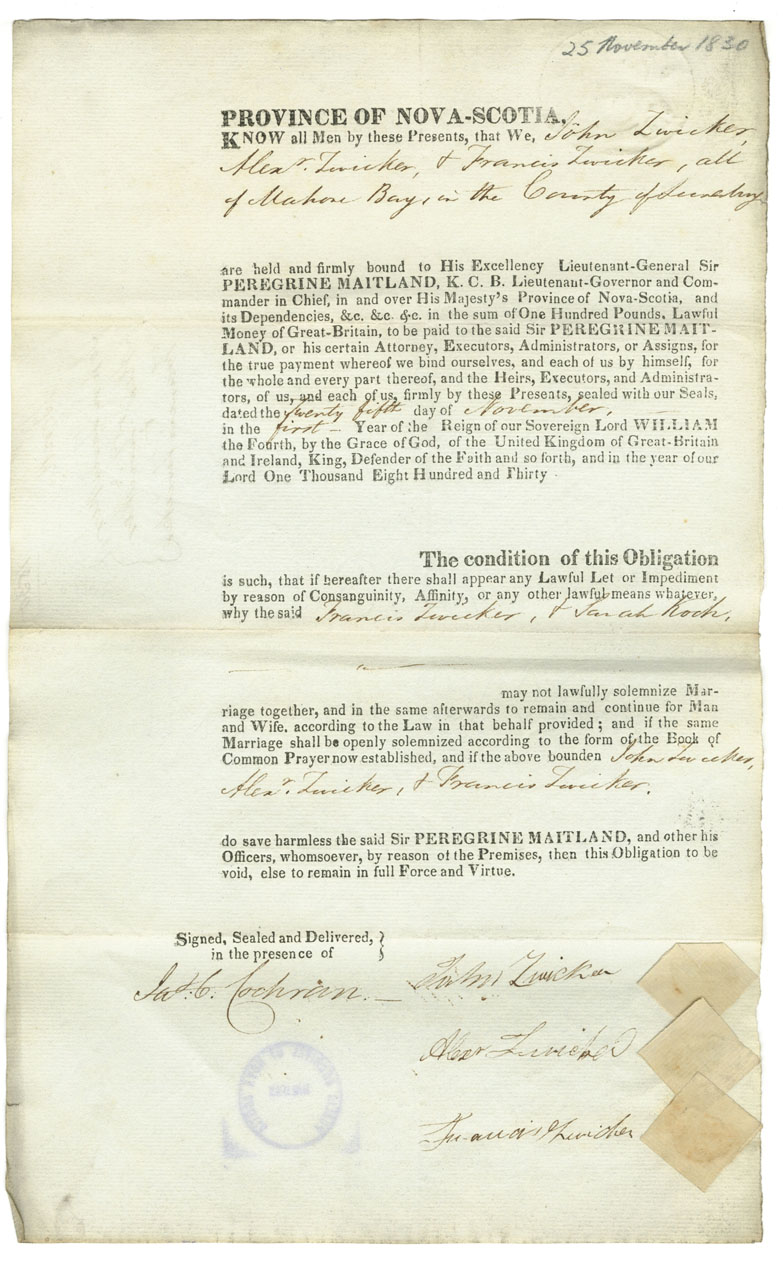 25 November 1830
PROVINCE OF NOVA-SCOTIA.
KNOW all Men by these Presents, that We, John Zwicker,
Alexr. Zwicker, & Francis Zwicker, all
of Mahone Bay, in the County of Lunenburg
are held and firmly bound to His Excellency Lieutenant-General Sir
PEREGRINE MAITLAND, K. C. B. Lieutenant-Governor and Com-
mander in Chief, in and over His Majesty's Province of Nova-Scotia, and
its Dependencies, &c. &c. &c. in the sum of One Hundred Pounds, Lawful
Money of Great-Britain, to be paid to the said Sir PEREGRINE MAIT-
LAND, or his certain Attorney, Executors, Administrators, or Assigns, for
the true payment whereof we bind ourselves, and each of us by himself, for
the whole and every part thereof, and the Heirs, Executors, and Administra-
tors, of us, and each of us, firmly by these Presents, sealed with our Seals,
dated the twenty fifth day of November,
in the first Year of the Reign of our Sovereign Lord WILLIAM
the Fourth, by the Grace of God, of the United Kingdom of Great-Britain
and Ireland, King, Defender of the Faith and so forth, and in the year of our
Lord One Thousand Eight Hundred and Thirty
The condition of this Obligation
is such, that if hereafter there shall appear any Lawful Let or Impediment
by reason of Consanguinity, Affinity, or any other lawful means whatever,
why the said Francis Zwicker, & Sarah Koch,
may not lawfully solemnize Mar-
riage together, and in the same afterwards to remain and continue for Man
and Wife. according to the Law in that behalf provided; and if the same
Marriage shall be openly solemnized according to the form of the Book of
Common Prayer now established, and if the above bounden John Zwicker,
Alexr. Zwicker, & Francis Zwicker.
do save harmless the said Sir PEREGRINE MAITLAND, and other his
Officers, whomsoever, by reason of the Premises, then this Obligation to be
void, else to remain in full Force and Virtue.
Signed, Sealed and Delivered,
in the presence of
Jas. C. Cochran
John Zwicker
Alexr Zwicker
Francis Zwicker